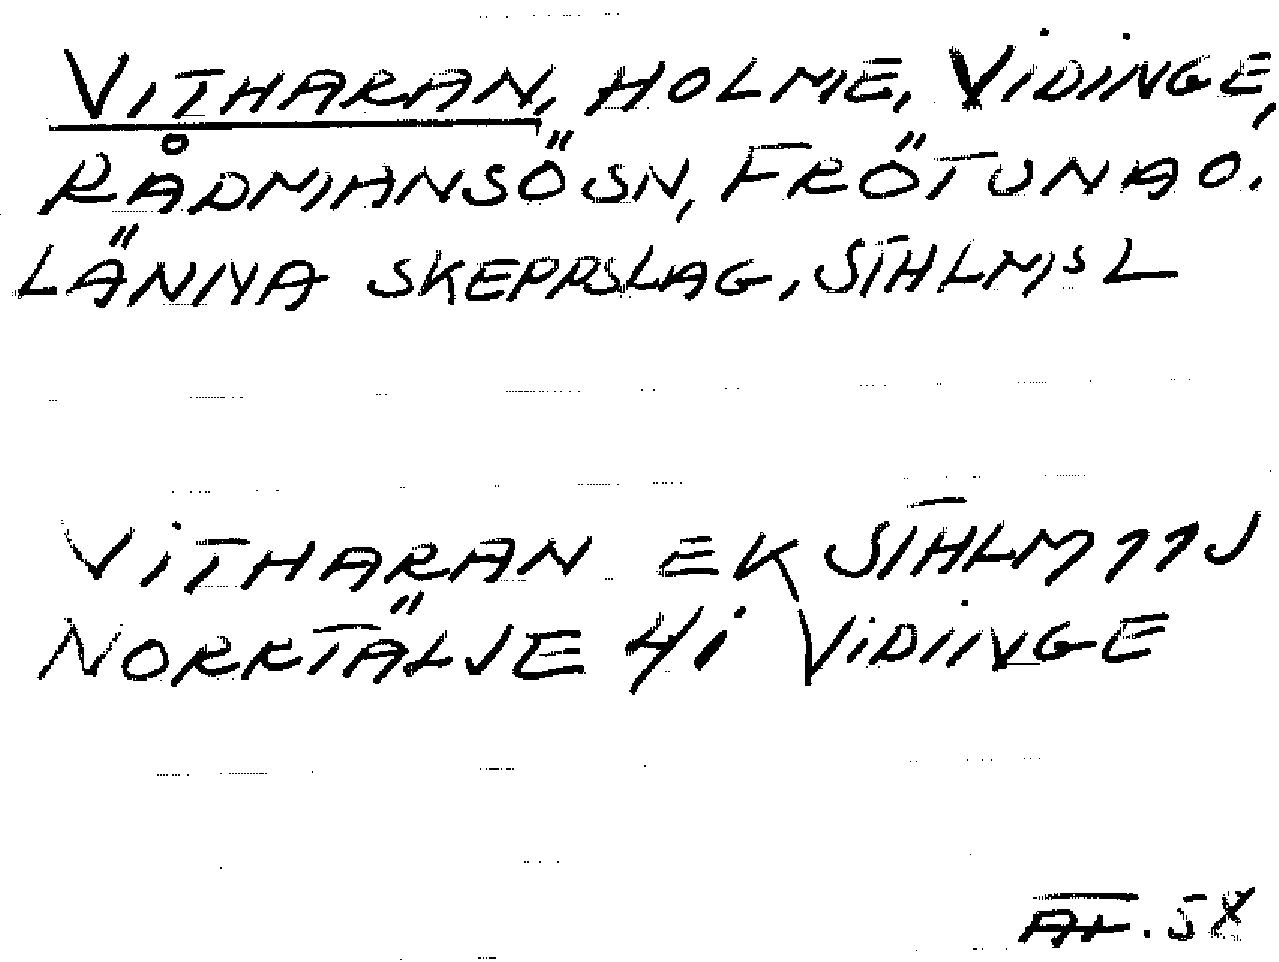 VITHARAN, HOLME, VIDINGE,
RÅDMANSÖ SN, FRÖTUNA O.
LÄNNA SKEPPSLAG, STHLMS L
VITHARAN EK STHLM 11J
NORRTÄLJE 4i VIDINGE